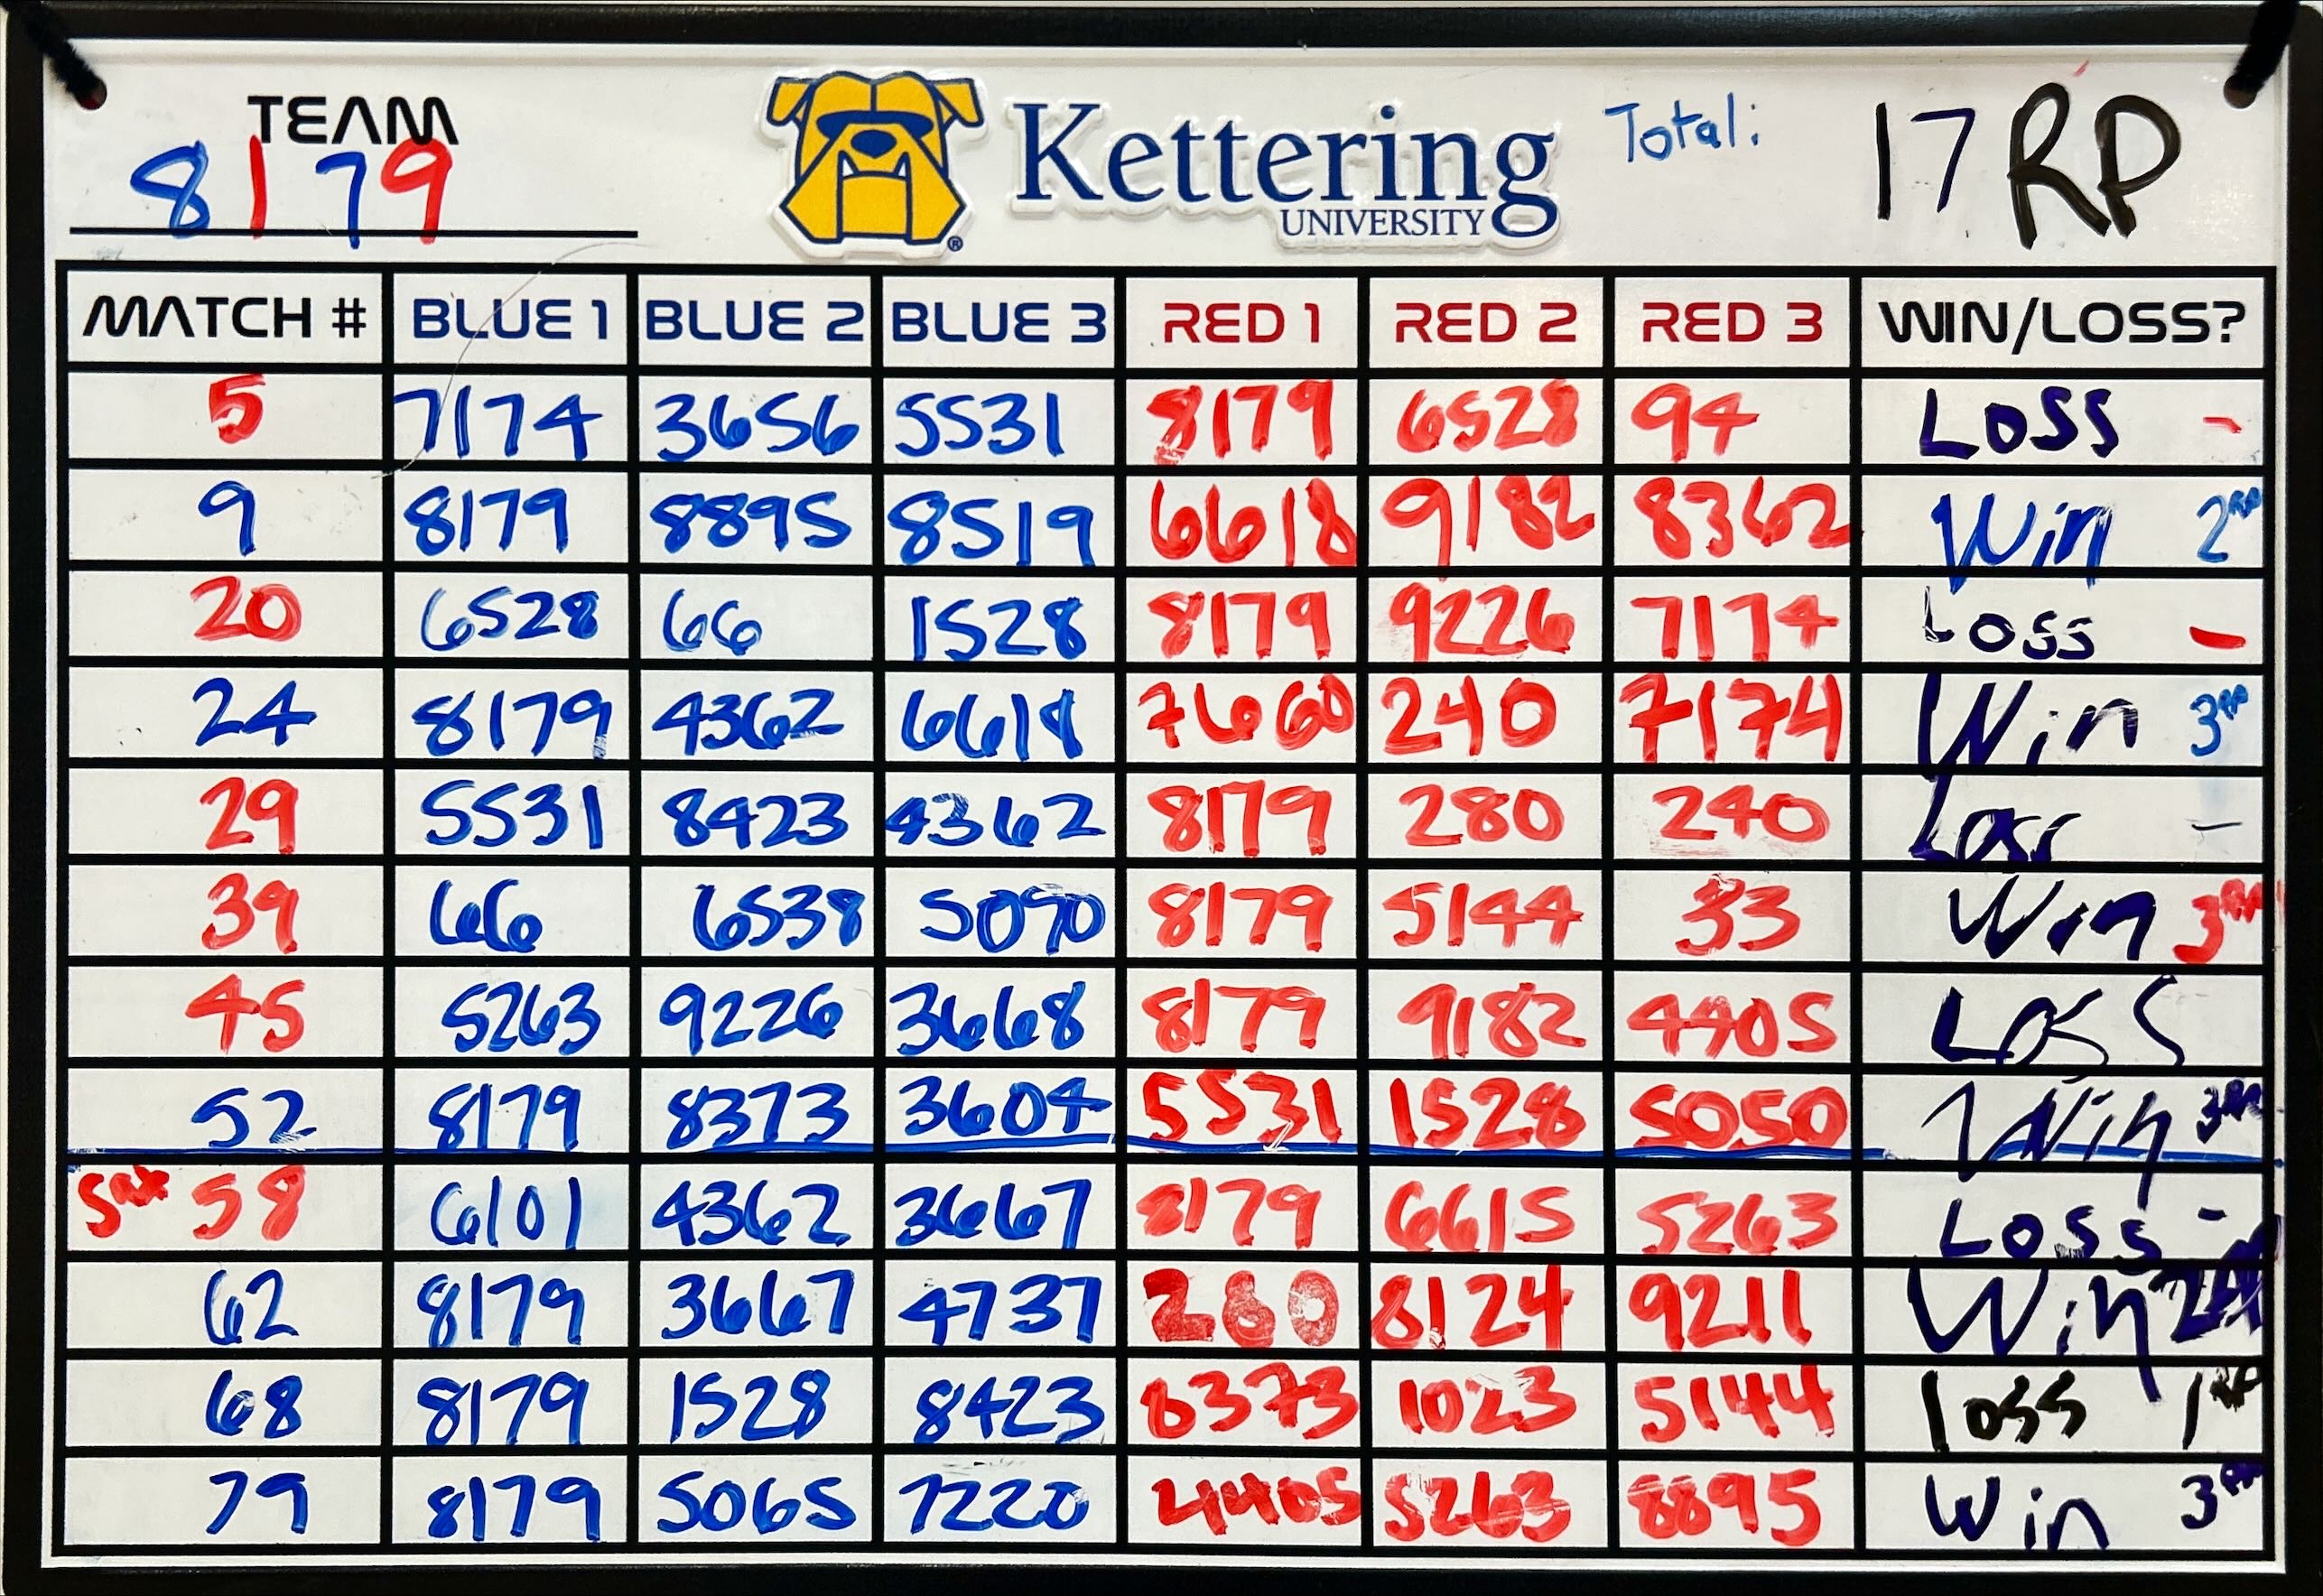 TEAM
8179
Kettering
UNIVERSITY
®
Total: 17 RP
MATCH # BLUE 1 BLUE 2 BLUE 3 RED 1 RED 2 RED 3 WIN/LOSS?
5 7174 3656 5531 8179 6528 94 Loss -
9 8179 8895 8519 6618 9182 8362 Win 2RP
20 6528 66 1528 8179 9226 7174 Loss -
24 8179 4362 6618 7660 240 7174 Win 3RP
29 5531 8423 4362 8179 280 240 Loss -
39 66 6538 5090 8179 5144 33 Win 3RP
45 5263 9226 3668 8179 9182 4405 Loss
52 8179 8373 3604 5531 1528 5050 Win 3RP
58 6101 4362 3667 8179 6615 5263 Loss -
62 8179 3667 4737 280 8124 9211 Win 2RP
68 8179 1528 8423 8373 1023 5144 loss 1RP
79 8179 5065 7220 4405 5263 8895 Win 3RP